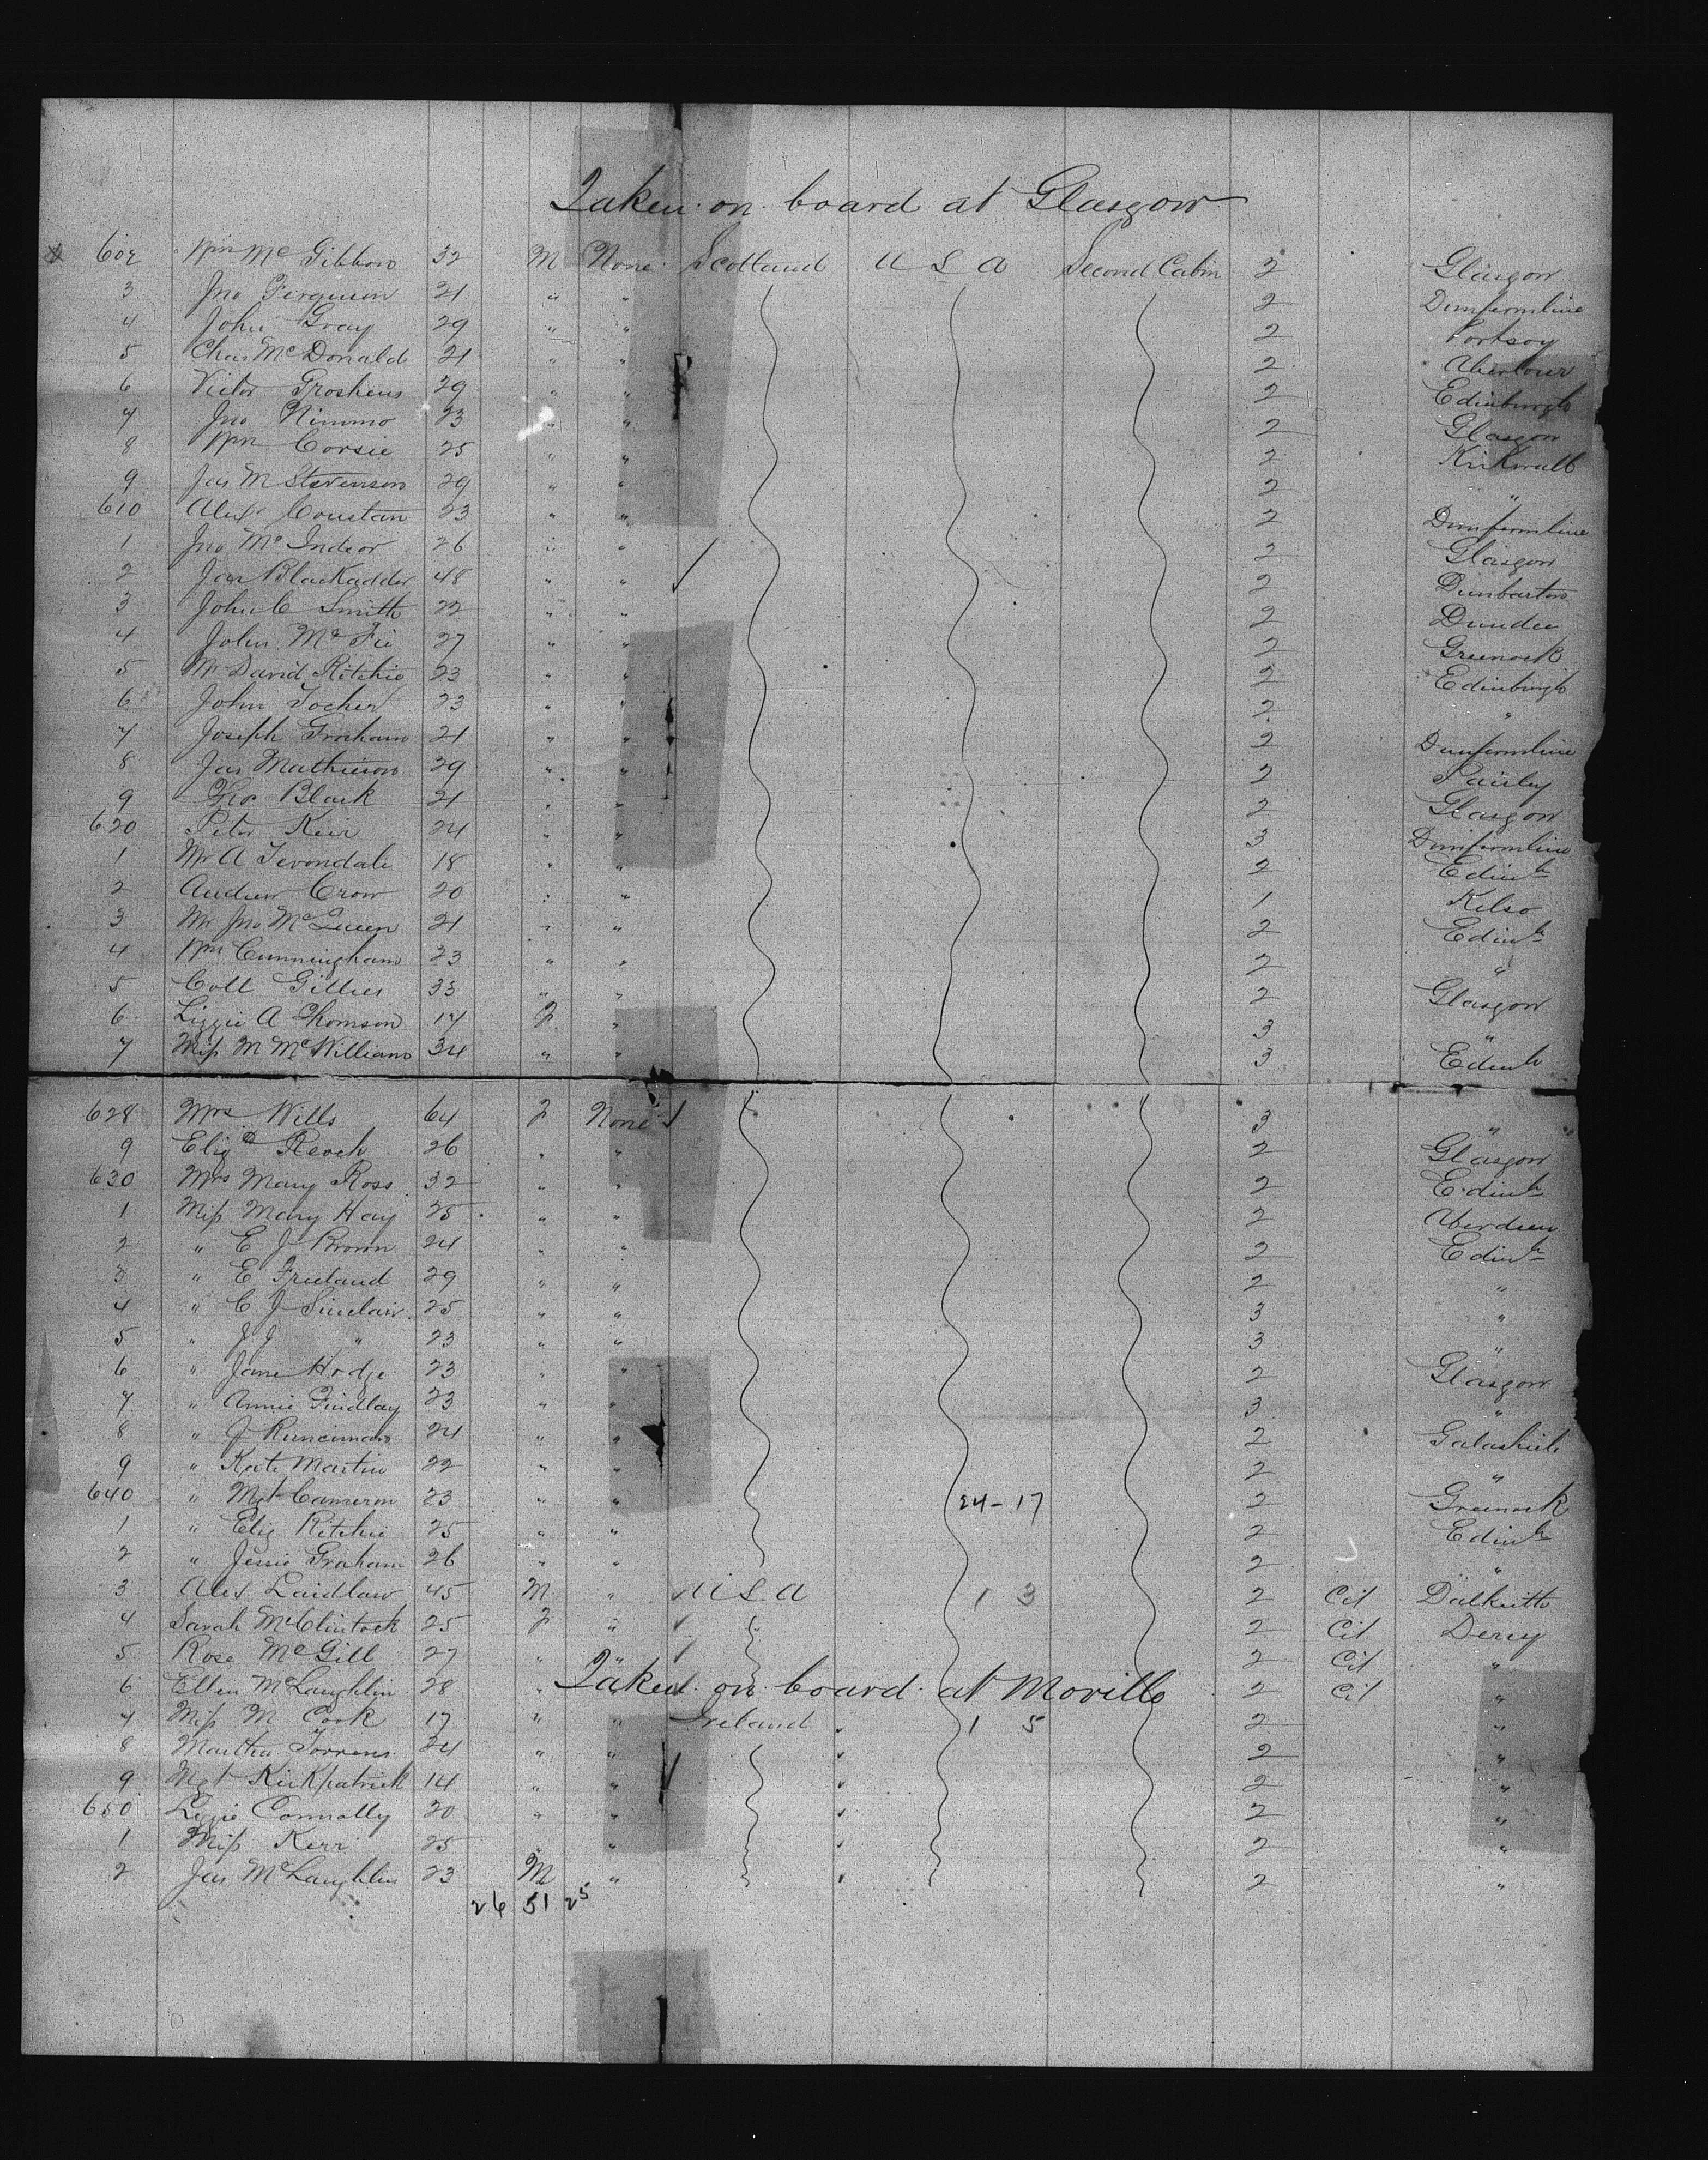 Taken on board at Glasgow
602 Wm McGibbon 32 M None Scotland U S A Second Cabin 2 Glasgow
3 Jno Ferguson 21 " " 2 Dunfermline
4 John Gray 29 " " 2 Portsoy
5 Chas McDonald 21 " " 2 Aberlour
6 Victor Grosheus 29 " " 2 Edinburgh
7 Jno Nimmo 23 " " 2 Glasgow
8 Wm Corsie 25 " " 2 Kirkwall
9 Jas M Stevenson 29 " " 2 "
610 Alexr Coustan 23 " " 2 Dunfermline
1 Jno McIndeor 26 " " 2 Glasgow
2 Jas Blackadder 48 " " 2 Dunbarton
3 John C Smith 22 " " 2 Dundee
4 John McFie 27 " " 2 Greenock
5 Mr David Ritchie 23 " " 2 Edinburgh
6 John Tocher 23 " " 2 "
7 Joseph Graham 21 " " 2 Dunfermline
8 Jas Mathieson 29 " " 2 Paisley
9 Thos Black 21 " " 2 Glasgow
620 Peter Keir 24 " " 3 Dunfermline
1 Mr A Tevondale 18 " " 2 Edinh
2 Andrew Crow 20 " " 1 Kelso
3 Mr Jno McQueen 21 " " 2 Edinh
4 Wm Cunningham 23 " " 2 "
5 Coll Gillies 33 " " 2 Glasgow
6 Lizzie A Thomson 17 F " 3 "
7 Miss M McWilliams 34 " " 3 Edinh
628 Mrs Wills 64 F None 3 "
9 Eliz Reoch 26 " " 2 Glasgow
630 Mrs Mary Ross 32 " " 2 Edinh
1 Miss Mary Hay 25 " " 2 Aberdeen
2 " E J Brown 24 " " 2 Edinh
3 " E Freeland 29 " " 2 "
4 " C J Sinclair 25 " " 3 "
5 " J J " 23 " " 3 "
6 " Jane Hodge 23 " " 2 Glasgow
7 " Annie Findlay 23 " " 3 "
8 " J Runciman 24 " " 2 Galashiels
9 " Kate Martin 22 " " 2 "
640 " Mgt Cameron 23 " " 24-17 2 Greenock
1 " Eliz Ritchie 25 " " 2 Edinh
2 " Jessie Graham 26 " " 2 "
3 Alex Laidlaw 45 M " U S A 1 3 2 Cit Dalkeith
4 Sarah McClintock 25 F " 2 Cit Derry
5 Rose McGill 27 " " 2 Cit "
Taken on board at Moville
6 Ellen McLaughlin 28 " " 2 Cit "
7 Miss M Cook 17 " " Ireland 1 5 2 "
8 Martha Torrens 24 " " 2 "
9 Mgt Kirkpatrick 14 " " 2 "
650 Lizzie Connolly 20 " " 2 "
1 Miss Kerr 25 " " 2 "
2 Jas McLaughlin 23 M " 2 "
26 51 25